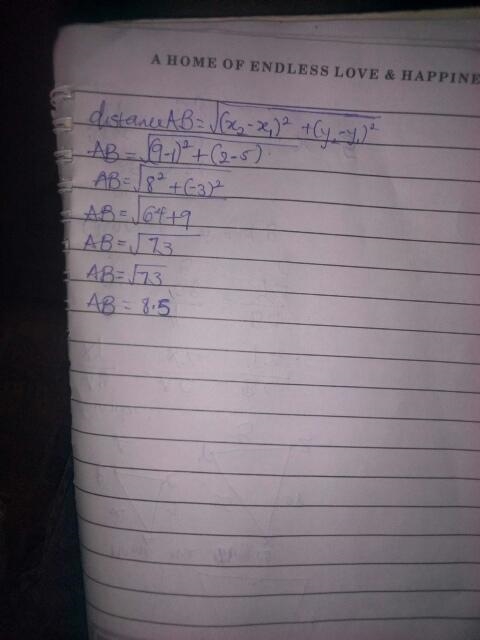 A HOME OF ENDLESS LOVE & HAPPINE
distance AB = √(x₂-x₁)² + (y₂-y₁)²
AB = √(9-1)² + (2-5)
AB = √8² + (-3)²
AB = √64+9
AB = √73
AB = √73
AB = 8.5